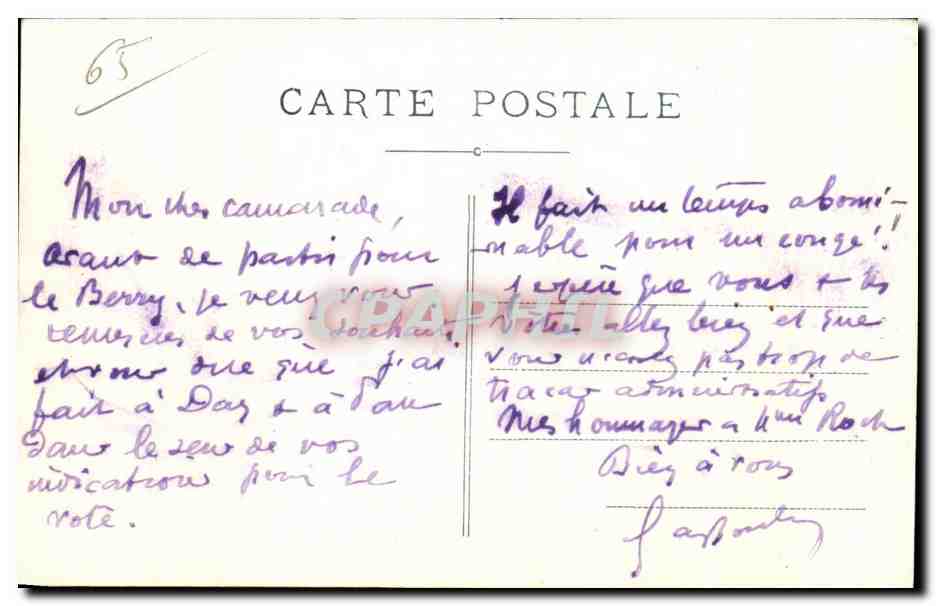 65
CARTE POSTALE
Mon cher camarade,
avant de partir pour
le Berry, je veux vous
remercier de vos souhaits
et vous dire que j'ai
fait à Dax + à Pau
dans le sens de vos
indications pour le
vote.
Il fait un temps abomi-
nable pour un congé!!
J'espère que vous + les
vôtres allez bien et que
vous n'avez pas trop de
tracas administratifs
Mes hommages a Mme Roch
Bien à vous
CRAPHIL